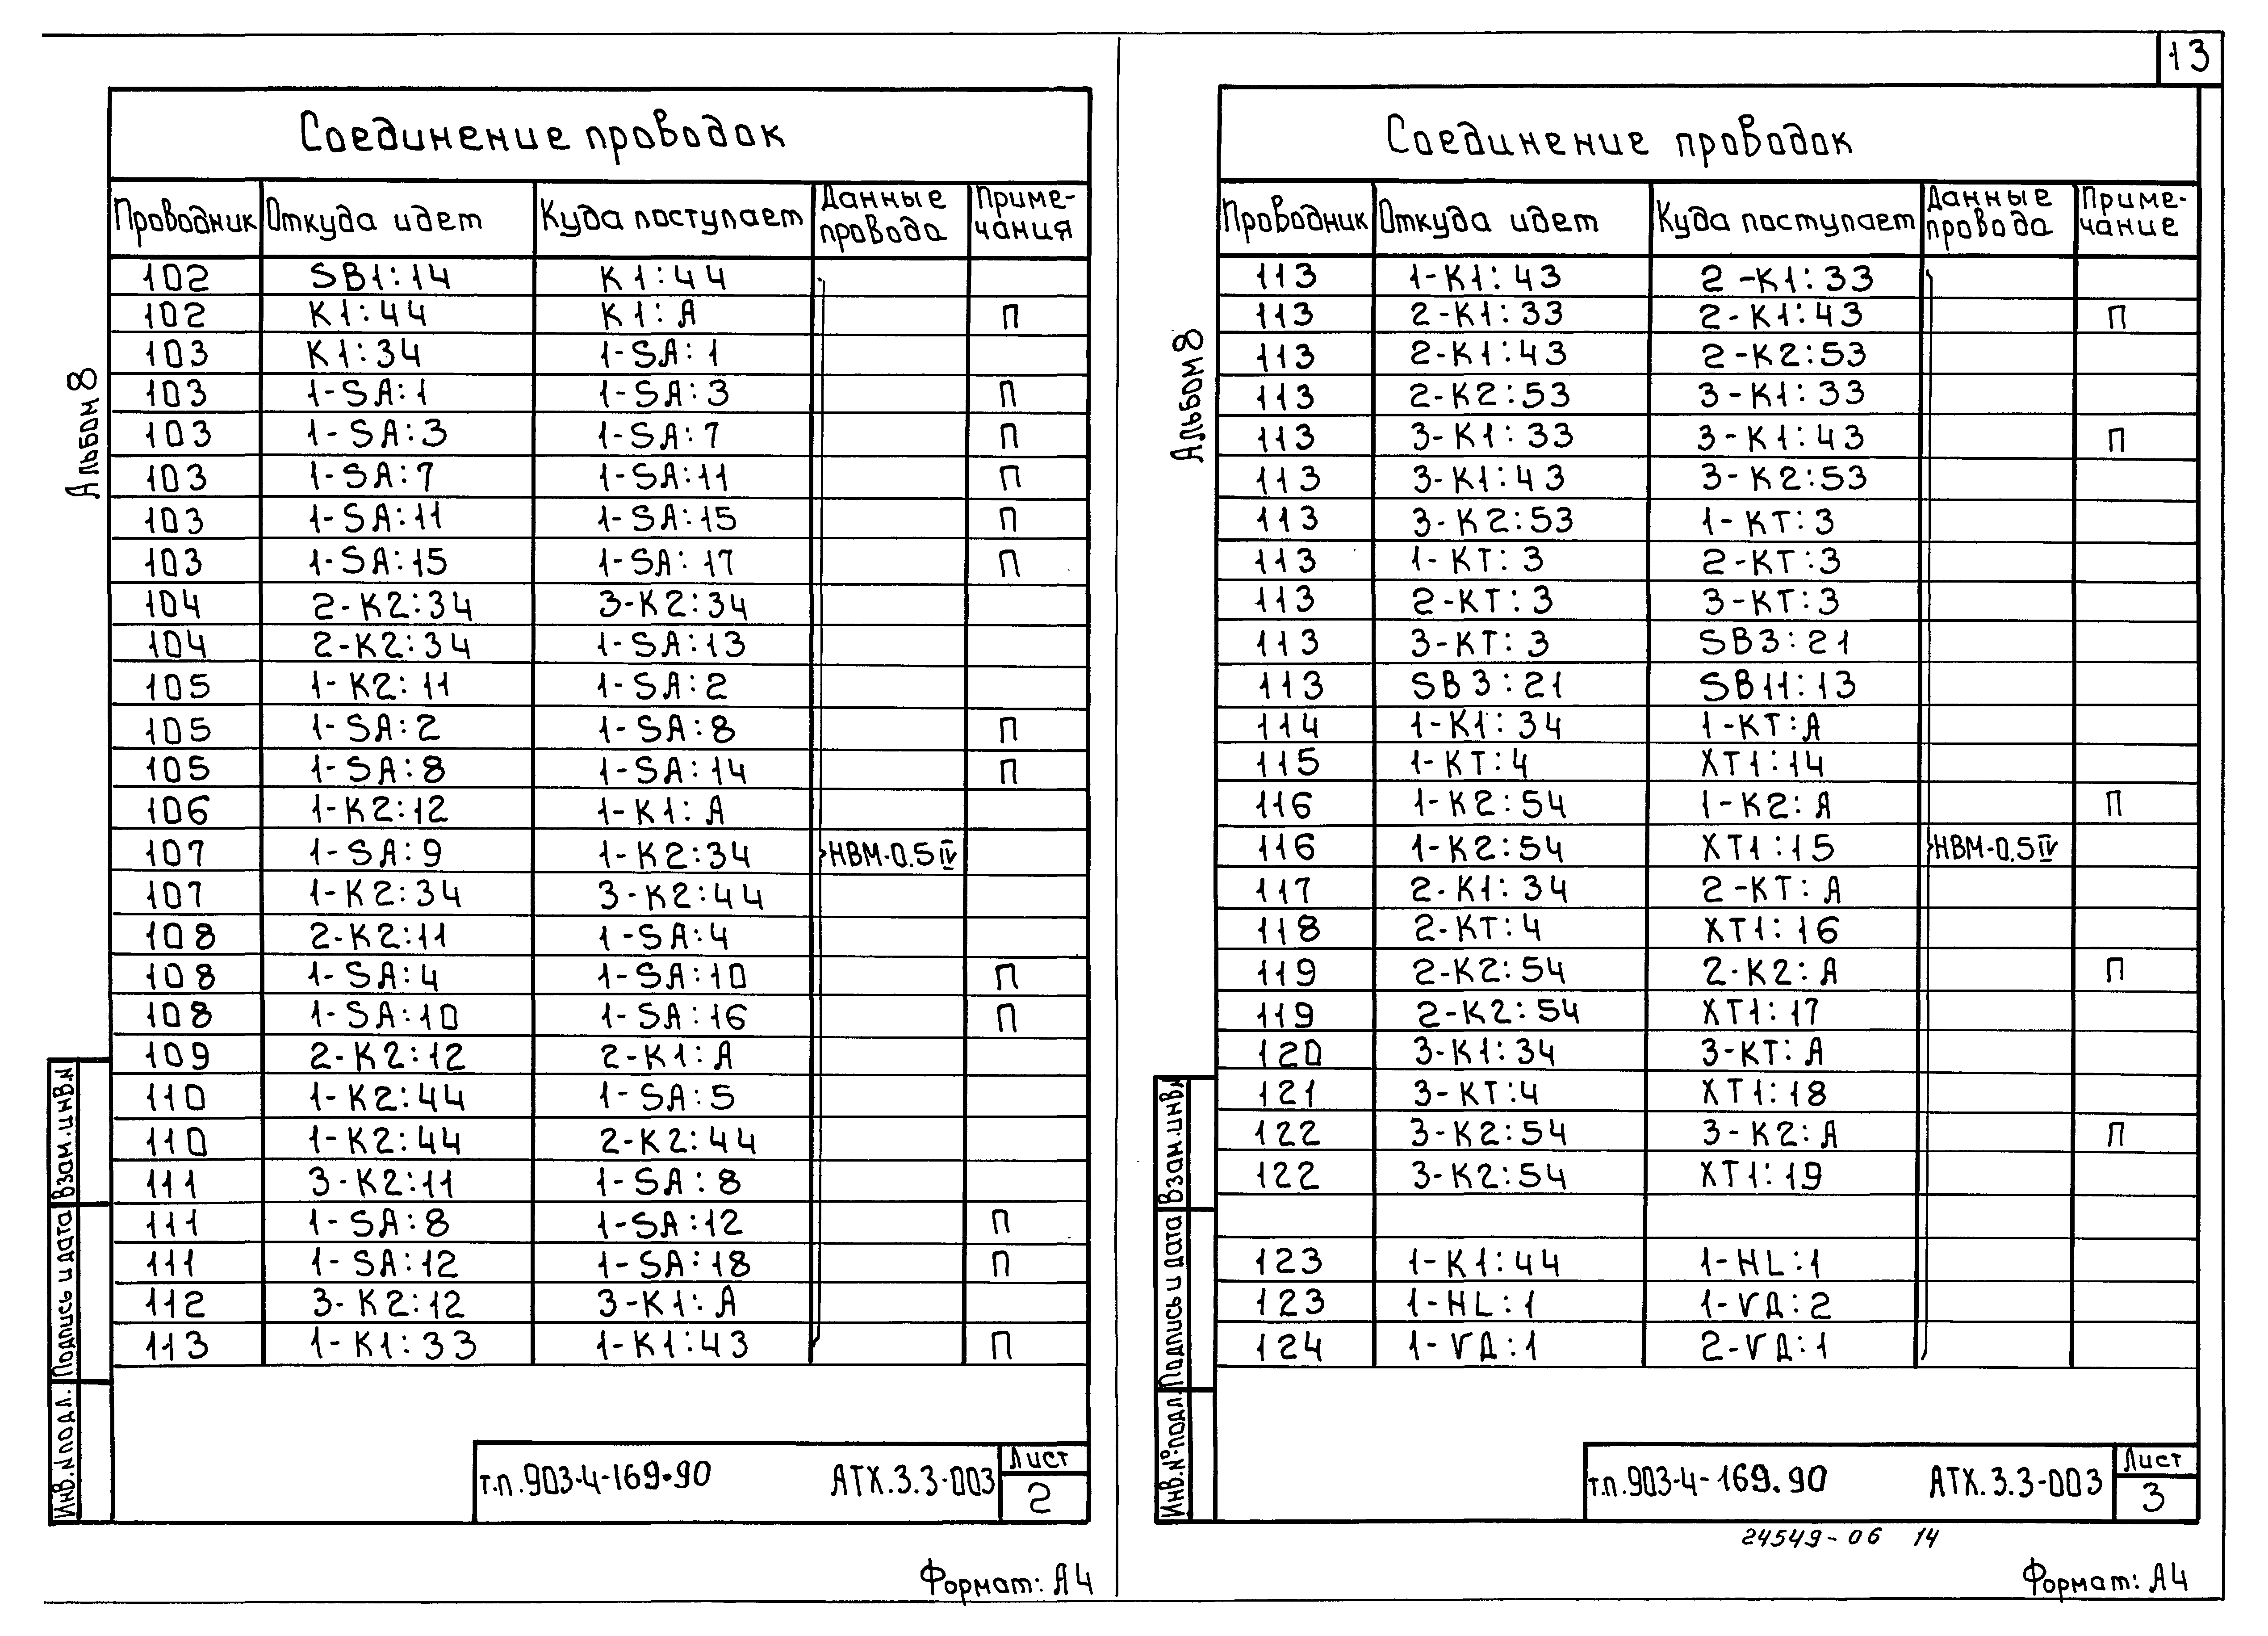 13
Соединение проводок
Проводник Откуда идет Куда поступает Данные провода Приме-чания
102 SB1:14 K1:44
102 K1:44 K1:A П
103 K1:34 1-SA:1
103 1-SA:1 1-SA:3 П
103 1-SA:3 1-SA:7 П
103 1-SA:7 1-SA:11 П
103 1-SA:11 1-SA:15 П
103 1-SA:15 1-SA:17 П
104 2-K2:34 3-K2:34
104 2-K2:34 1-SA:13
105 1-K2:11 1-SA:2
105 1-SA:2 1-SA:8 П
105 1-SA:8 1-SA:14 П
106 1-K2:12 1-K1:A
107 1-SA:9 1-K2:34 НВМ-0.5 IV
107 1-K2:34 3-K2:44
108 2-K2:11 1-SA:4
108 1-SA:4 1-SA:10 П
108 1-SA:10 1-SA:16 П
109 2-K2:12 2-K1:A
110 1-K2:44 1-SA:5
110 1-K2:44 2-K2:44
111 3-K2:11 1-SA:8
111 1-SA:8 1-SA:12 П
111 1-SA:12 1-SA:18 П
112 3-K2:12 3-K1:A
113 1-K1:33 1-K1:43 П
Альбом 8
Взам.инв.N
Подпись и дата
Инв.N подл.
т.п.903-4-169.90 АТХ.3.3-003 Лист 2
Формат: А4
Соединение проводок
Проводник Откуда идет Куда поступает Данные провода Приме-чание
113 1-K1:43 2-K1:33
113 2-K1:33 2-K1:43 П
113 2-K1:43 2-K2:53
113 2-K2:53 3-K1:33
113 3-K1:33 3-K1:43 П
113 3-K1:43 3-K2:53
113 3-K2:53 1-KT:3
113 1-KT:3 2-KT:3
113 2-KT:3 3-KT:3
113 3-KT:3 SB3:21
113 SB3:21 SB11:13
114 1-K1:34 1-KT:A
115 1-KT:4 XT1:14
116 1-K2:54 1-K2:A П
116 1-K2:54 XT1:15 НВМ-0.5 IV
117 2-K1:34 2-KT:A
118 2-KT:4 XT1:16
119 2-K2:54 2-K2:A П
119 2-K2:54 XT1:17
120 3-K1:34 3-KT:A
121 3-KT:4 XT1:18
122 3-K2:54 3-K2:A П
122 3-K2:54 XT1:19
123 1-K1:44 1-HL:1
123 1-HL:1 1-VД:2
124 1-VД:1 2-VД:1
Альбом 8
Взам.инв.N
Подпись и дата
Инв.№подл.
т.п.903-4-169.90 АТХ.3.3-003 Лист 3
24549-06 14
Формат: А4